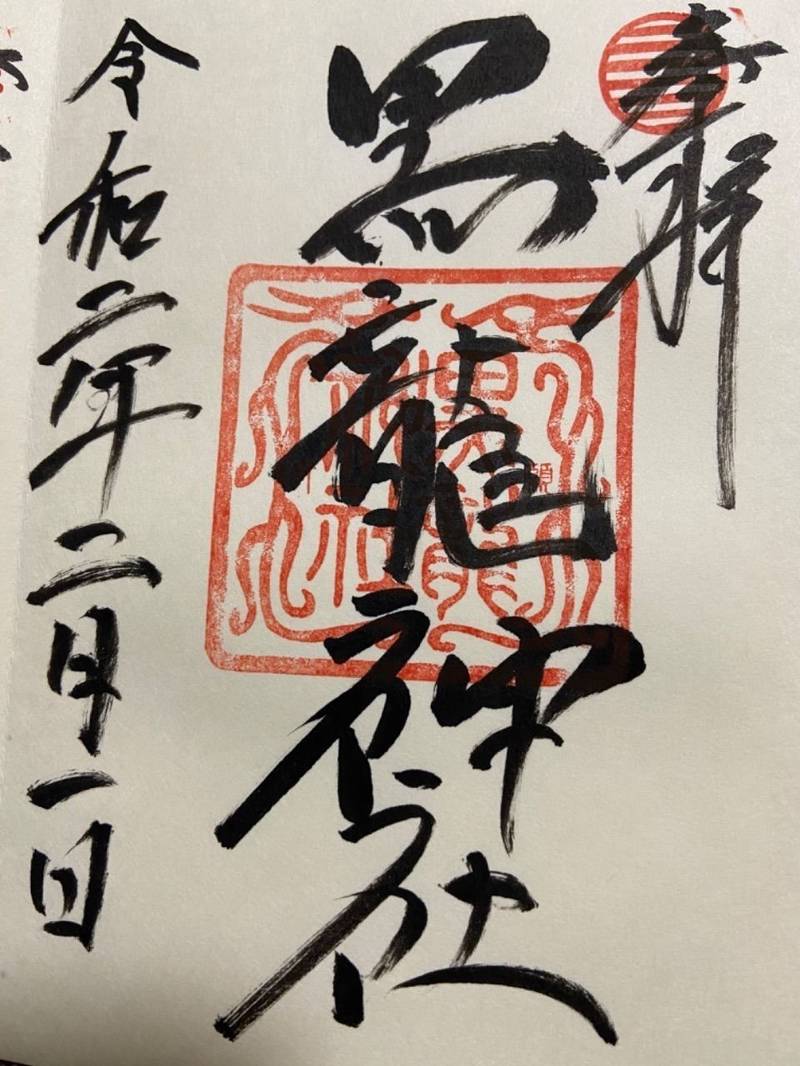 奉拝
黒龍神社
令和二年二月一日